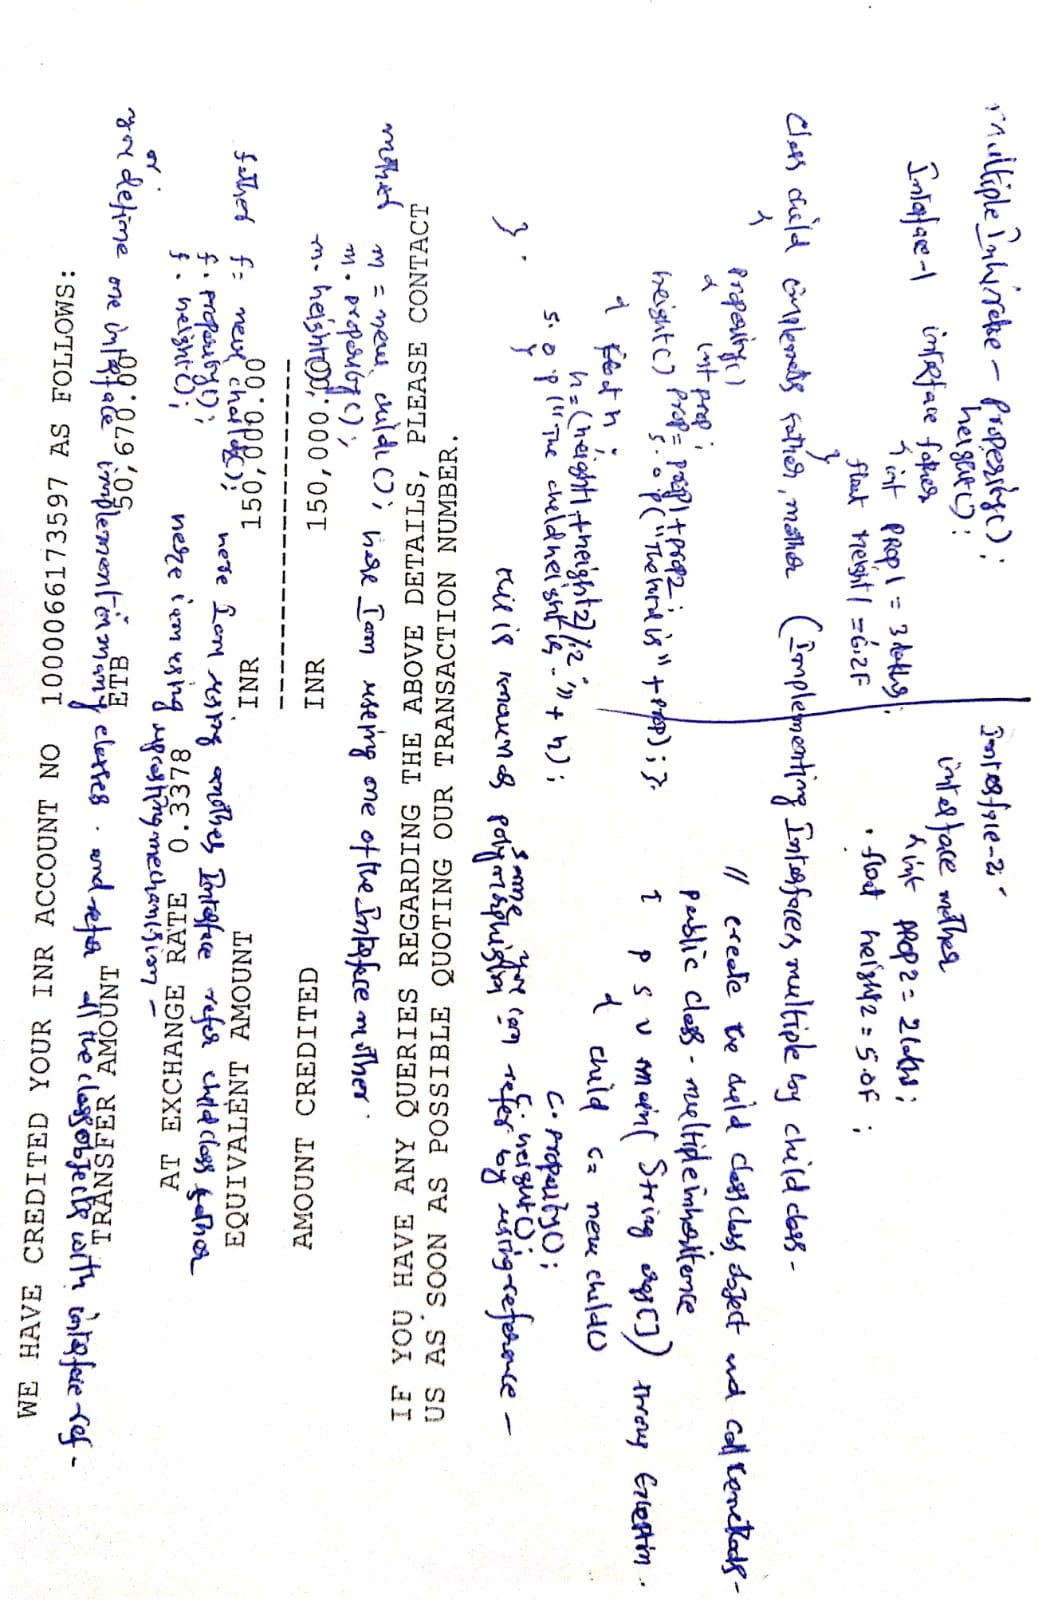 multiple Inhirete - Property();
height();
Interface-1 interface father
{ int prop1 = 3 lakhs;
float height1 = 6.2F
}
Interface-2
interface mother
{ int prop2 = 2 lakhs;
float height2 = 5.0F;
Class child implements father, mother (Implementing Interfaces, multiple by child class-
{
property()
{ int prop;
prop = prop1 + prop2;
s.o.p("The land is" + prop); }
height()
{ float h;
h = (height1 + height2)/2;
s.o.p("The child height is -" + h);
}
}.
// create the child class class object and call methods-
public class - multiple inheritence
{ p s v main(String args[]) throws Exception.
{ child c = new child()
c.property();
c.height();
This is known as polymorphism you can refer by using reference -
some
mother m = new child(); here I am using one of the Interface mother.
m.property();
m.height();
father f = new child(); here I am using another Interface refer child class father
f.property();
f.height(); here i am using upcasting mechanisism -
or
you define one interface implementin many classes. and refer all the class objects with interface ref -
WE HAVE CREDITED YOUR INR ACCOUNT NO 1000066173597 AS FOLLOWS:
TRANSFER AMOUNT ETB 50,670.00
AT EXCHANGE RATE 0.3378
EQUIVALENT AMOUNT INR 150,000.00
----------------------
AMOUNT CREDITED INR 150,000.00
IF YOU HAVE ANY QUERIES REGARDING THE ABOVE DETAILS, PLEASE CONTACT
US AS SOON AS POSSIBLE QUOTING OUR TRANSACTION NUMBER.